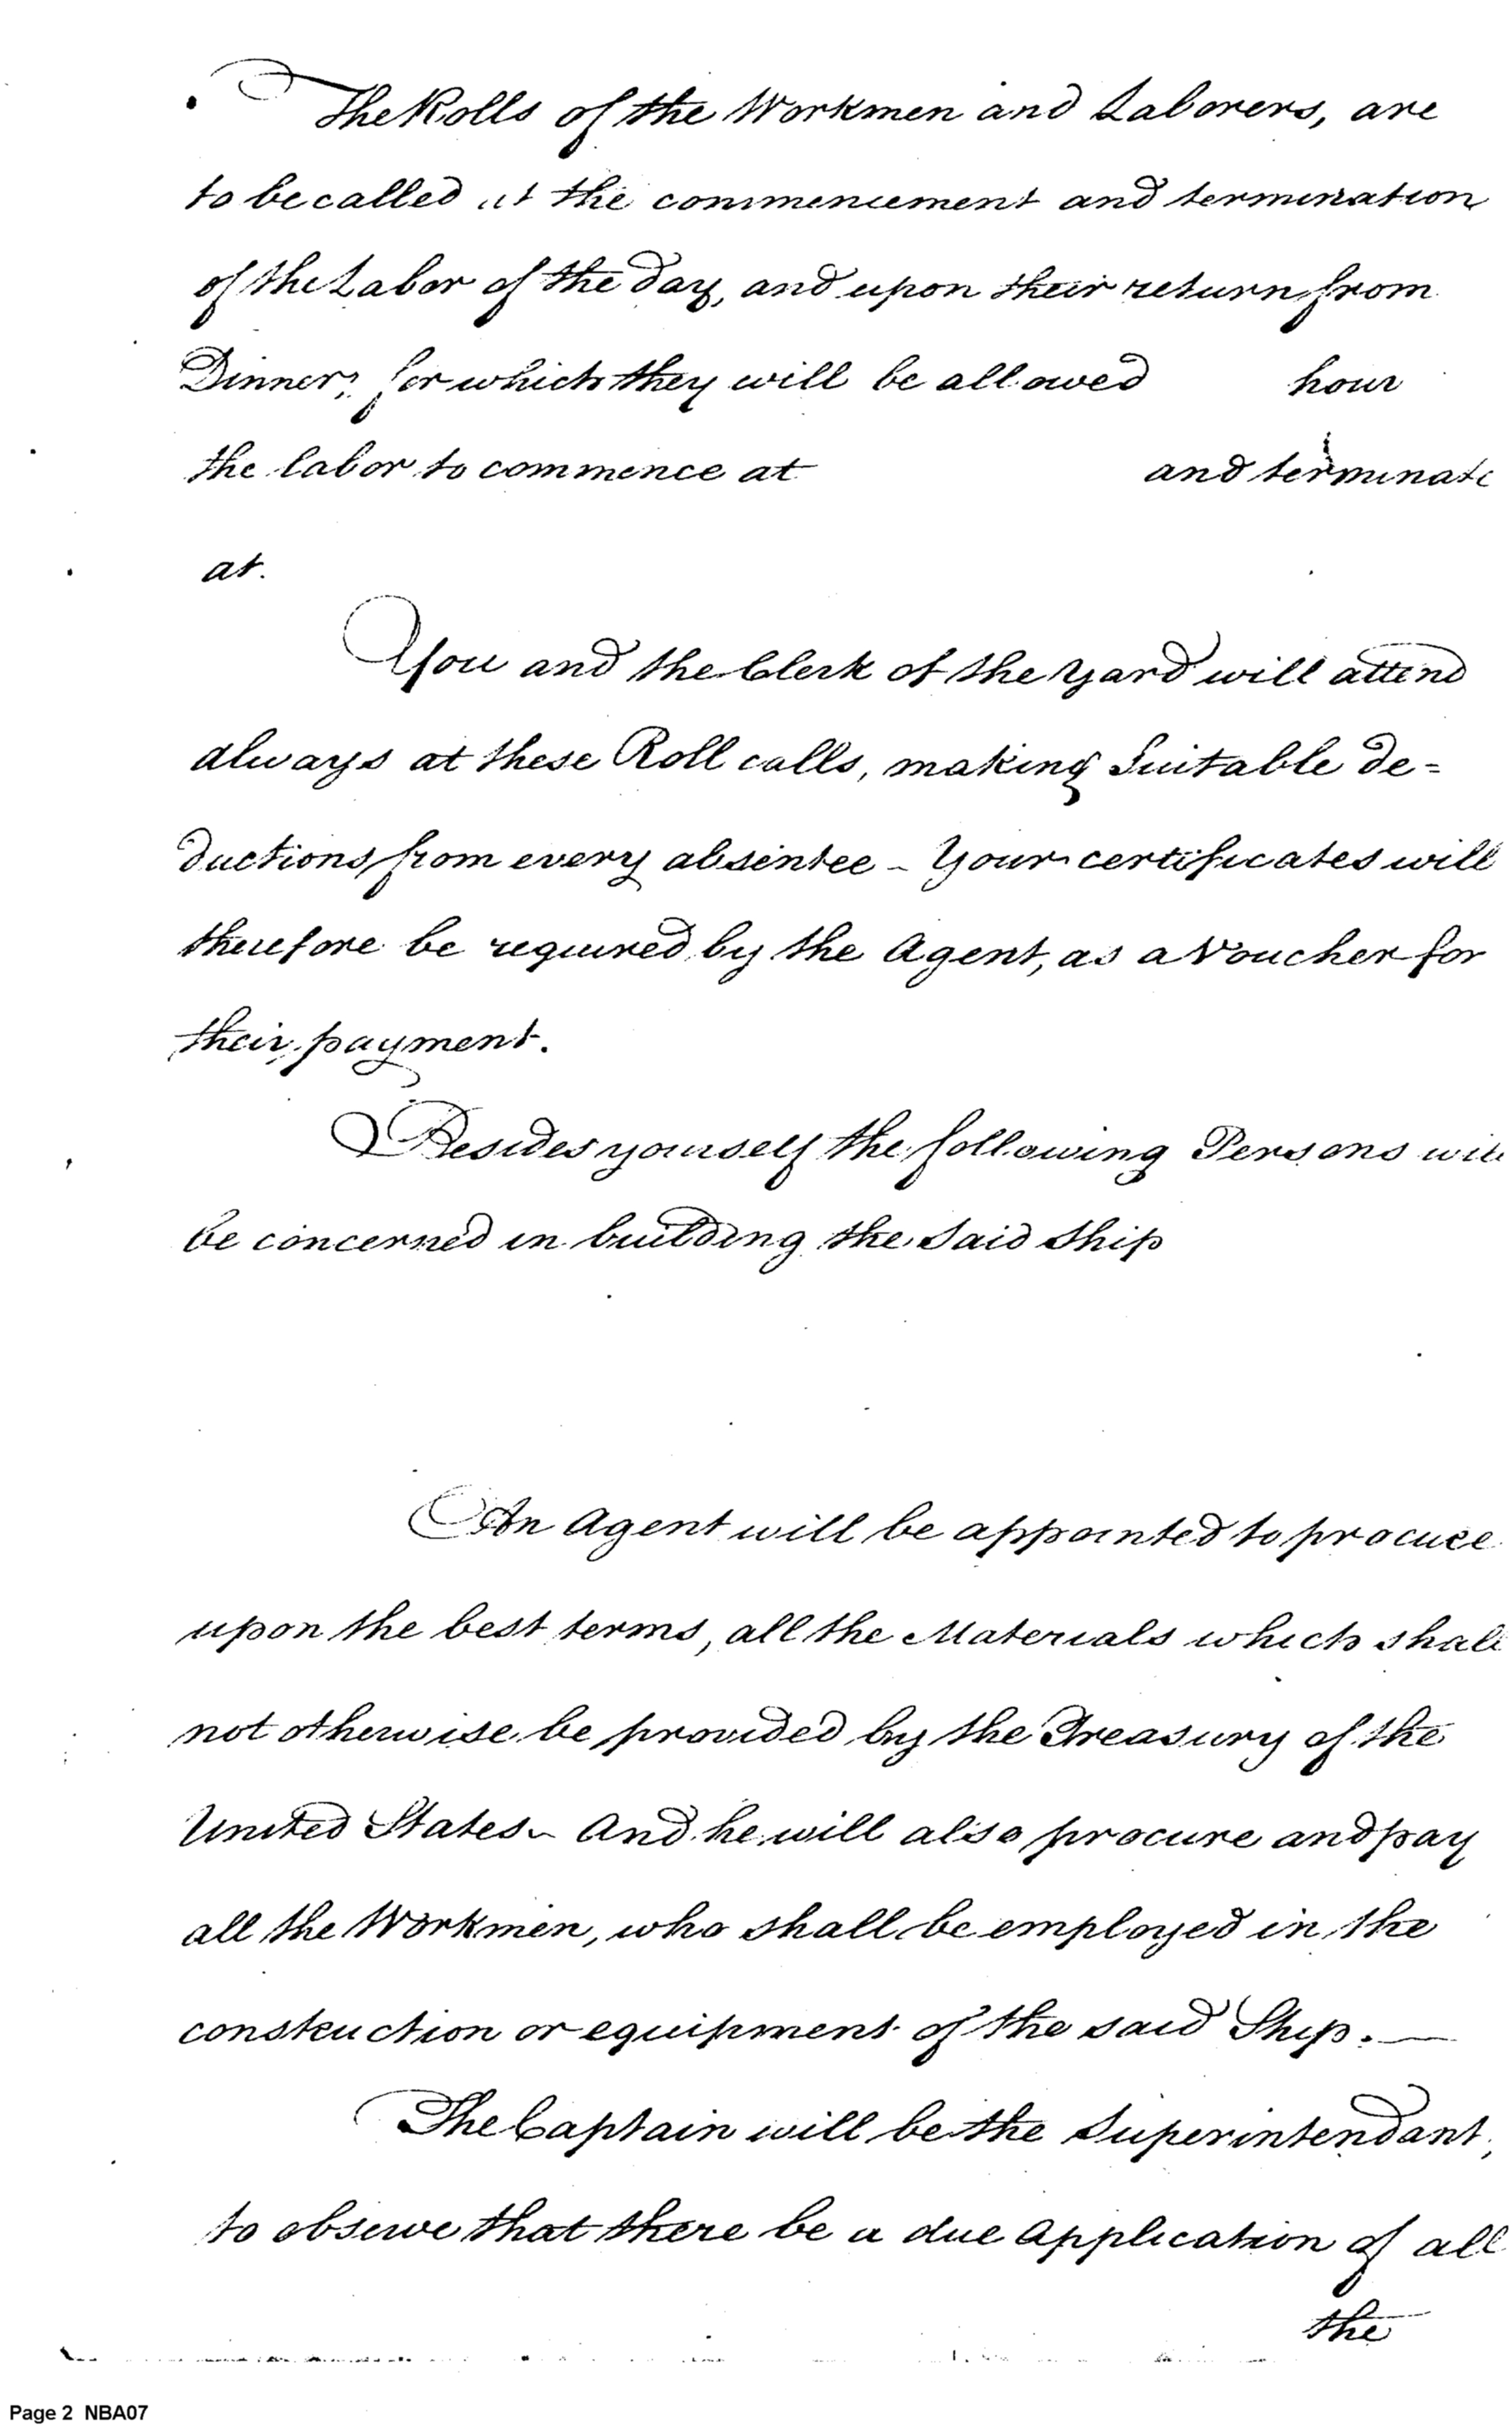 The Rolls of the Workmen and Laborers, are
to be called at the commencement and termination
of the Labor of the day, and upon their return from
Dinner, for which they will be allowed hour
the labor to commence at and terminate
at.
You and the Clerk of the yard will attend
always at these Roll calls, making Suitable de=
ductions from every absentee - Your certificates will
therefore be required by the Agent, as a Voucher for
their payment.
Besides yourself the following Persons will
be concerned in building the said Ship
An Agent will be appointed to procure
upon the best terms, all the Materials which shall
not otherwise be provided by the Treasury of the
United States - And he will also procure and pay
all the Workmen, who shall be employed in the
construction or equipment of the said Ship. —
The Captain will be the Superintendant,
to observe that there be a due application of all
the
Page 2 NBA07